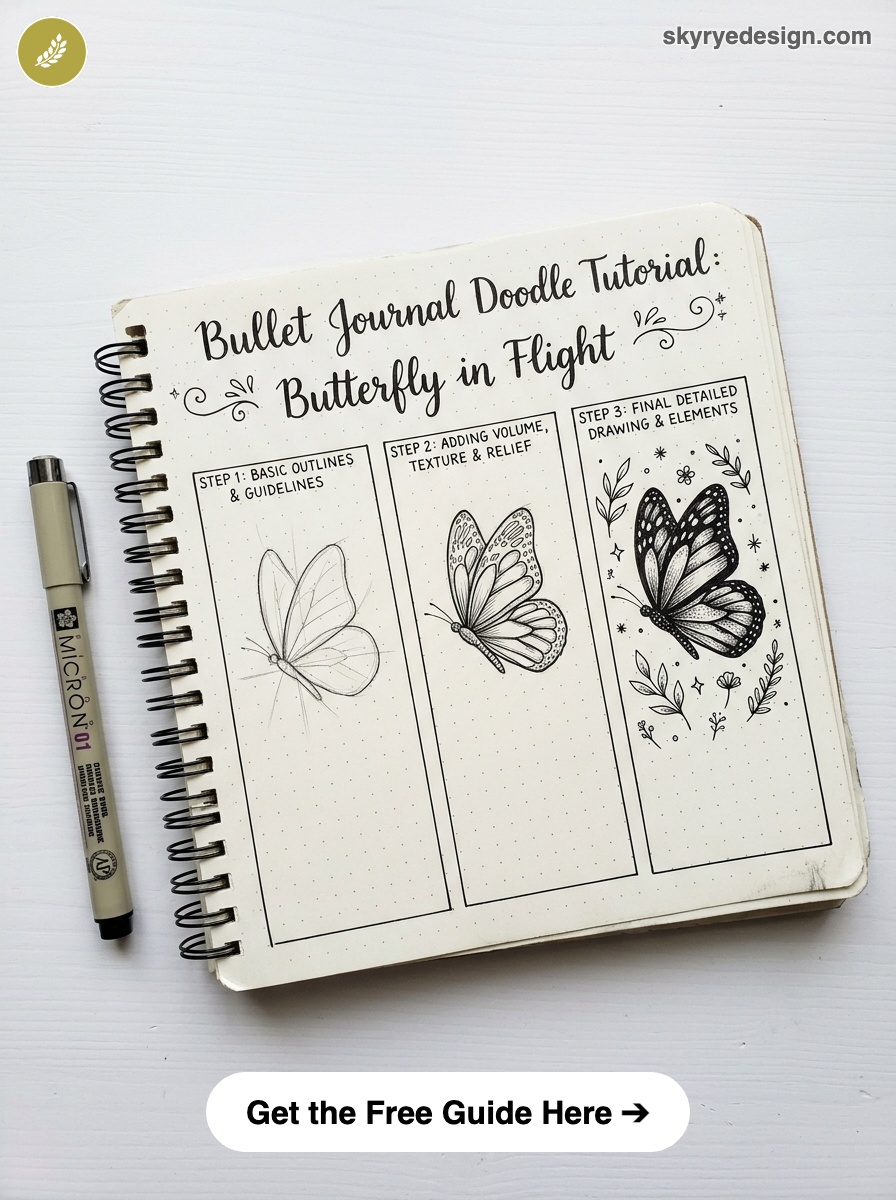 skyryedesign.com
Bullet Journal Doodle Tutorial:
Butterfly in Flight
STEP 1: BASIC OUTLINES
& GUIDELINES
STEP 2: ADDING VOLUME,
TEXTURE & RELIEF
STEP 3: FINAL DETAILED
DRAWING & ELEMENTS
MICRON 01
AP
Get the Free Guide Here ➔